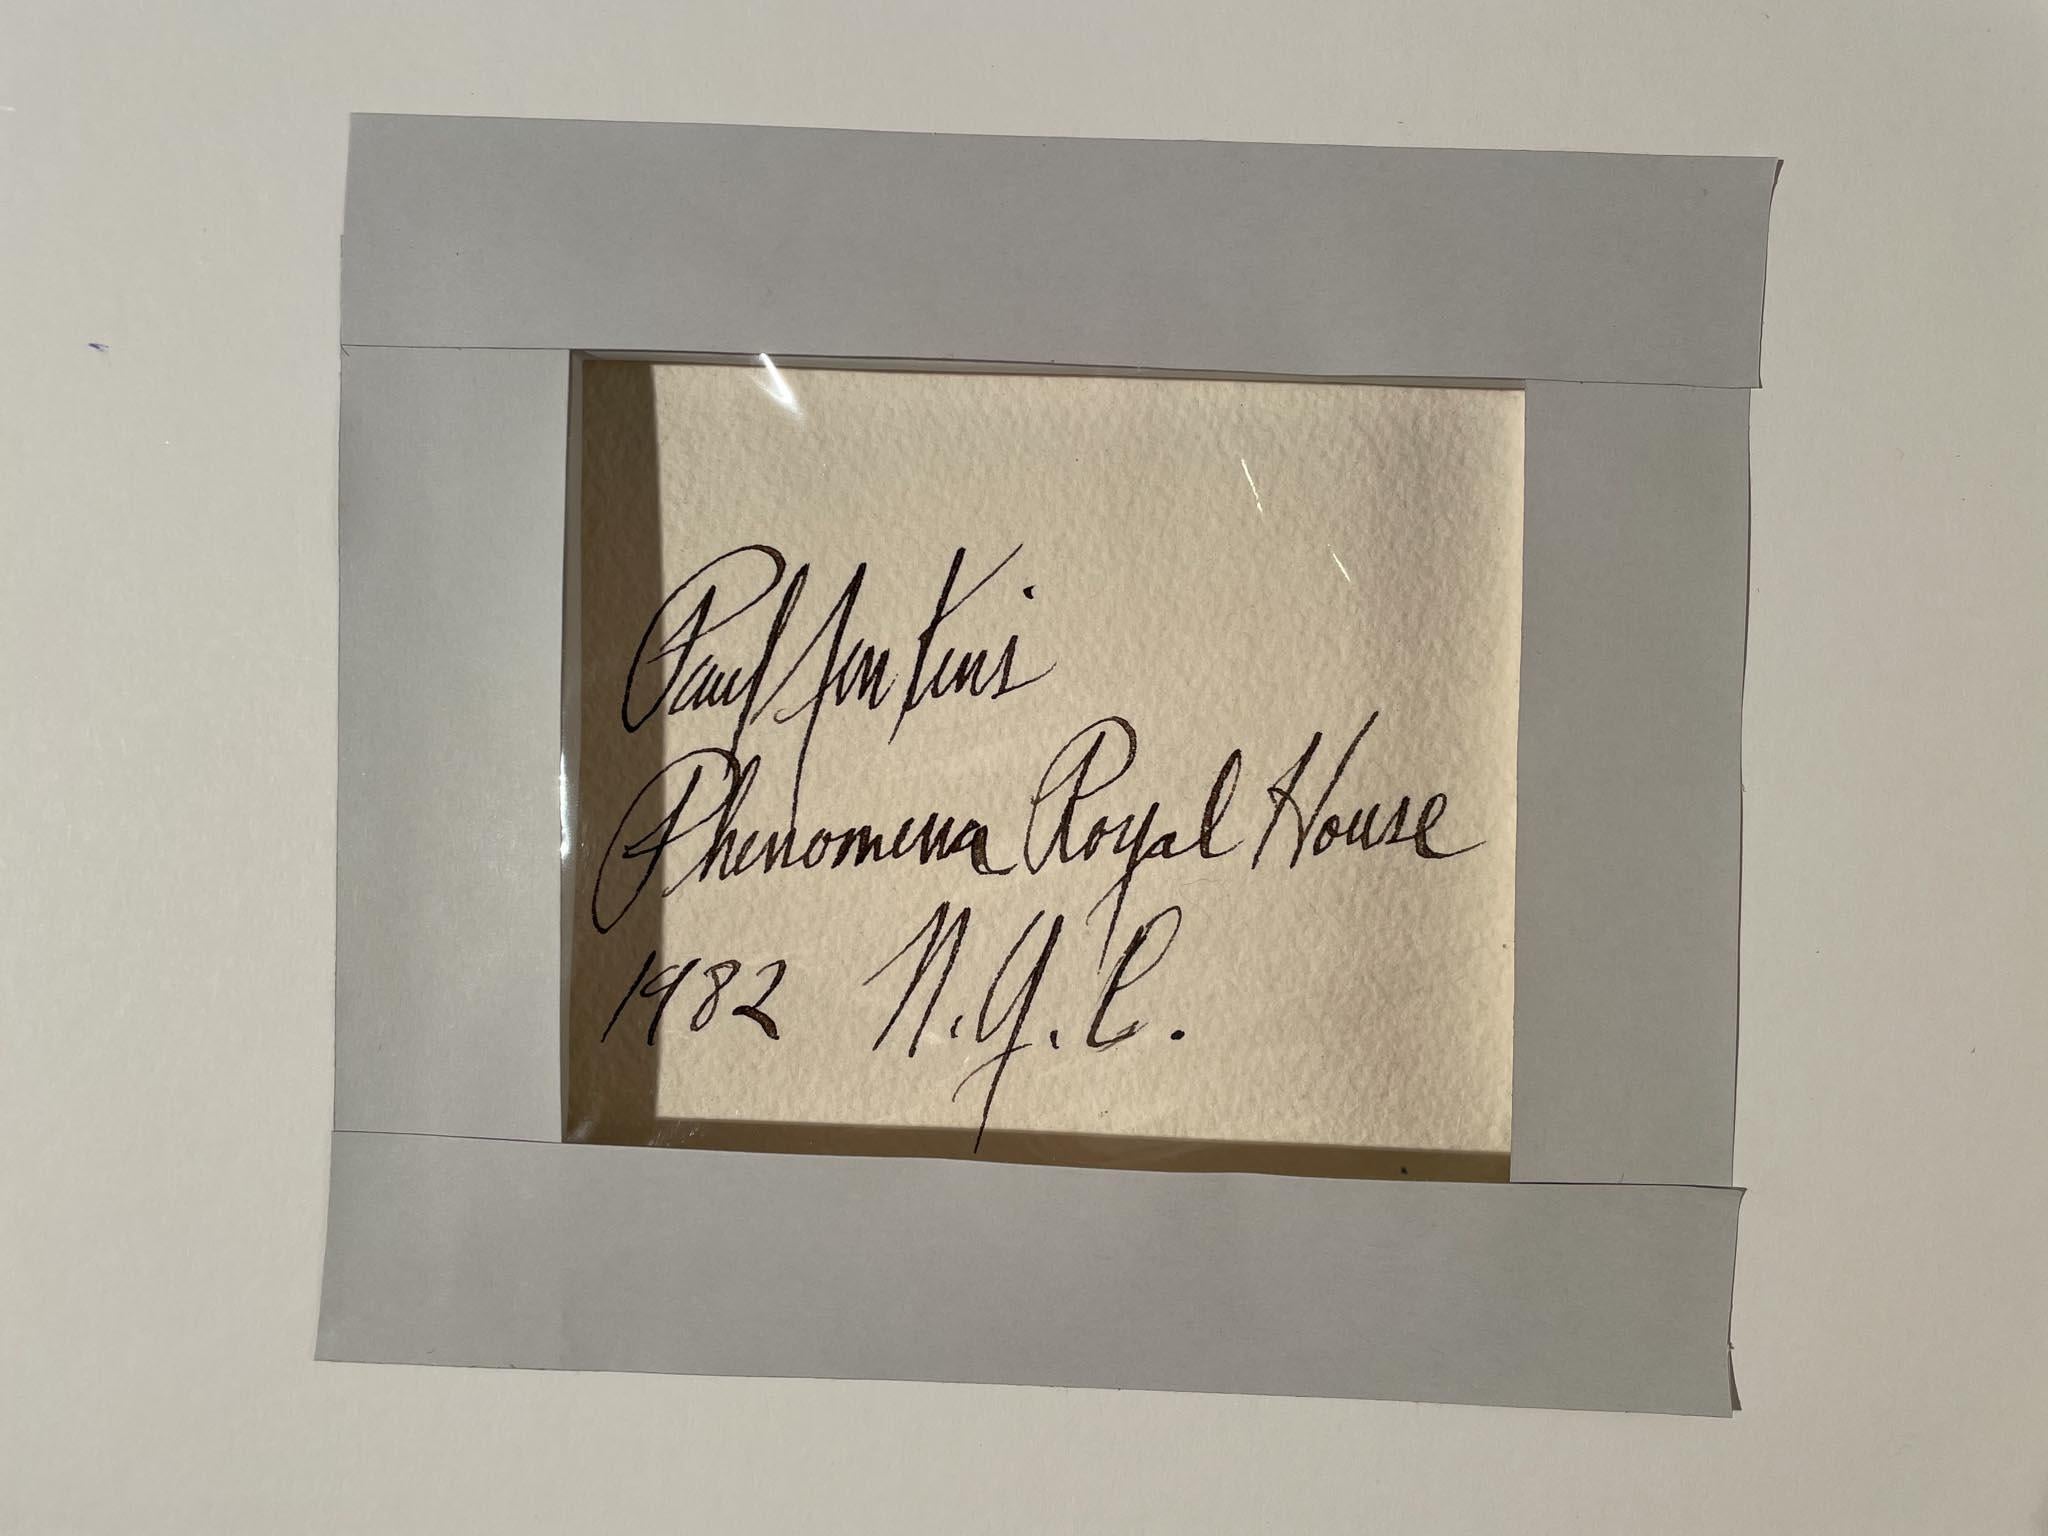 Paul Jenkins
Phenomena Royal House
1982 N.Y.C.